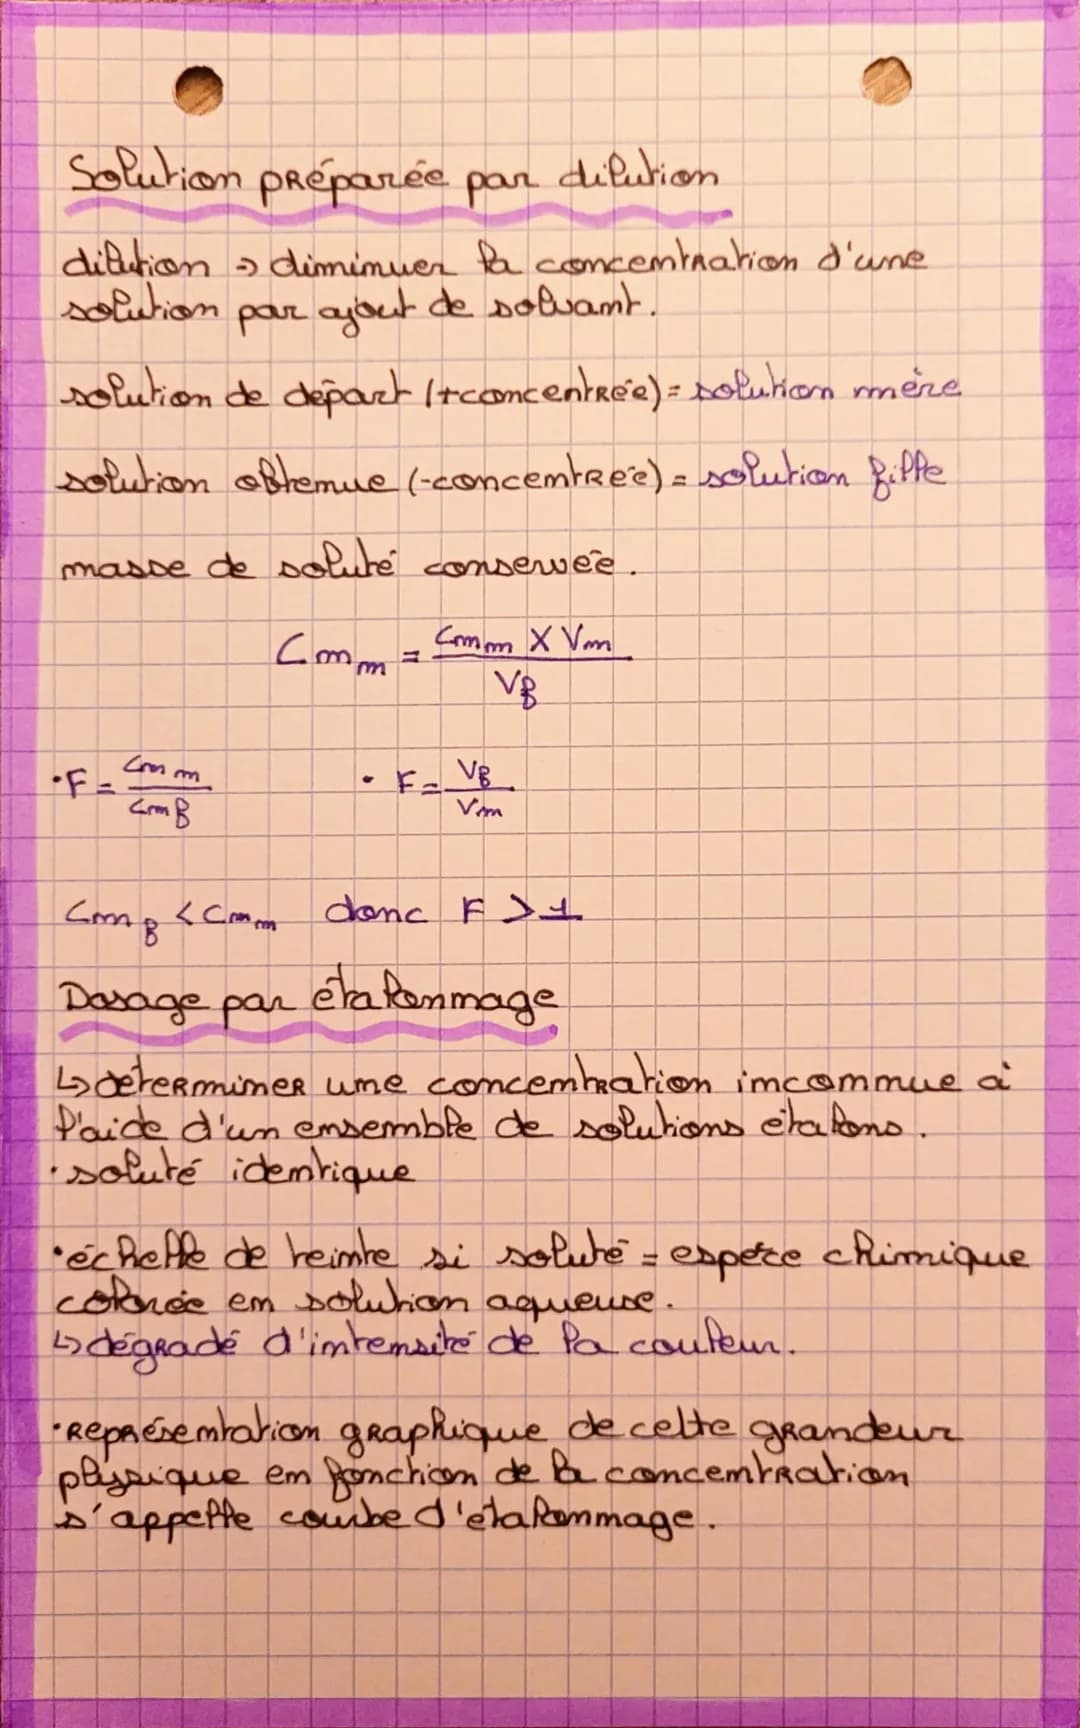 Solution préparée par dilution
dilution → diminuer la concentration d'une
solution par ajout de solvant.
solution de départ (+concentrée) = solution mère
solution obtenue (-concentrée) = solution fille
masse de soluté conservée.
Cm_m = (Cm_m X Vm) / Vf
• F = Cm_m / Cm_f • F = Vf / Vm
Cm_f < Cm_m donc F > 1
Dosage par étalonnage
↳ déterminer une concentration inconnue à
l'aide d'un ensemble de solutions étalons.
• soluté identique
• échelle de teinte si soluté = espèce chimique
colorée en solution aqueuse.
↳ dégradé d'intensité de la couleur.
• Représentation graphique de cette grandeur
physique en fonction de la concentration
s'appelle courbe d'étalonnage.